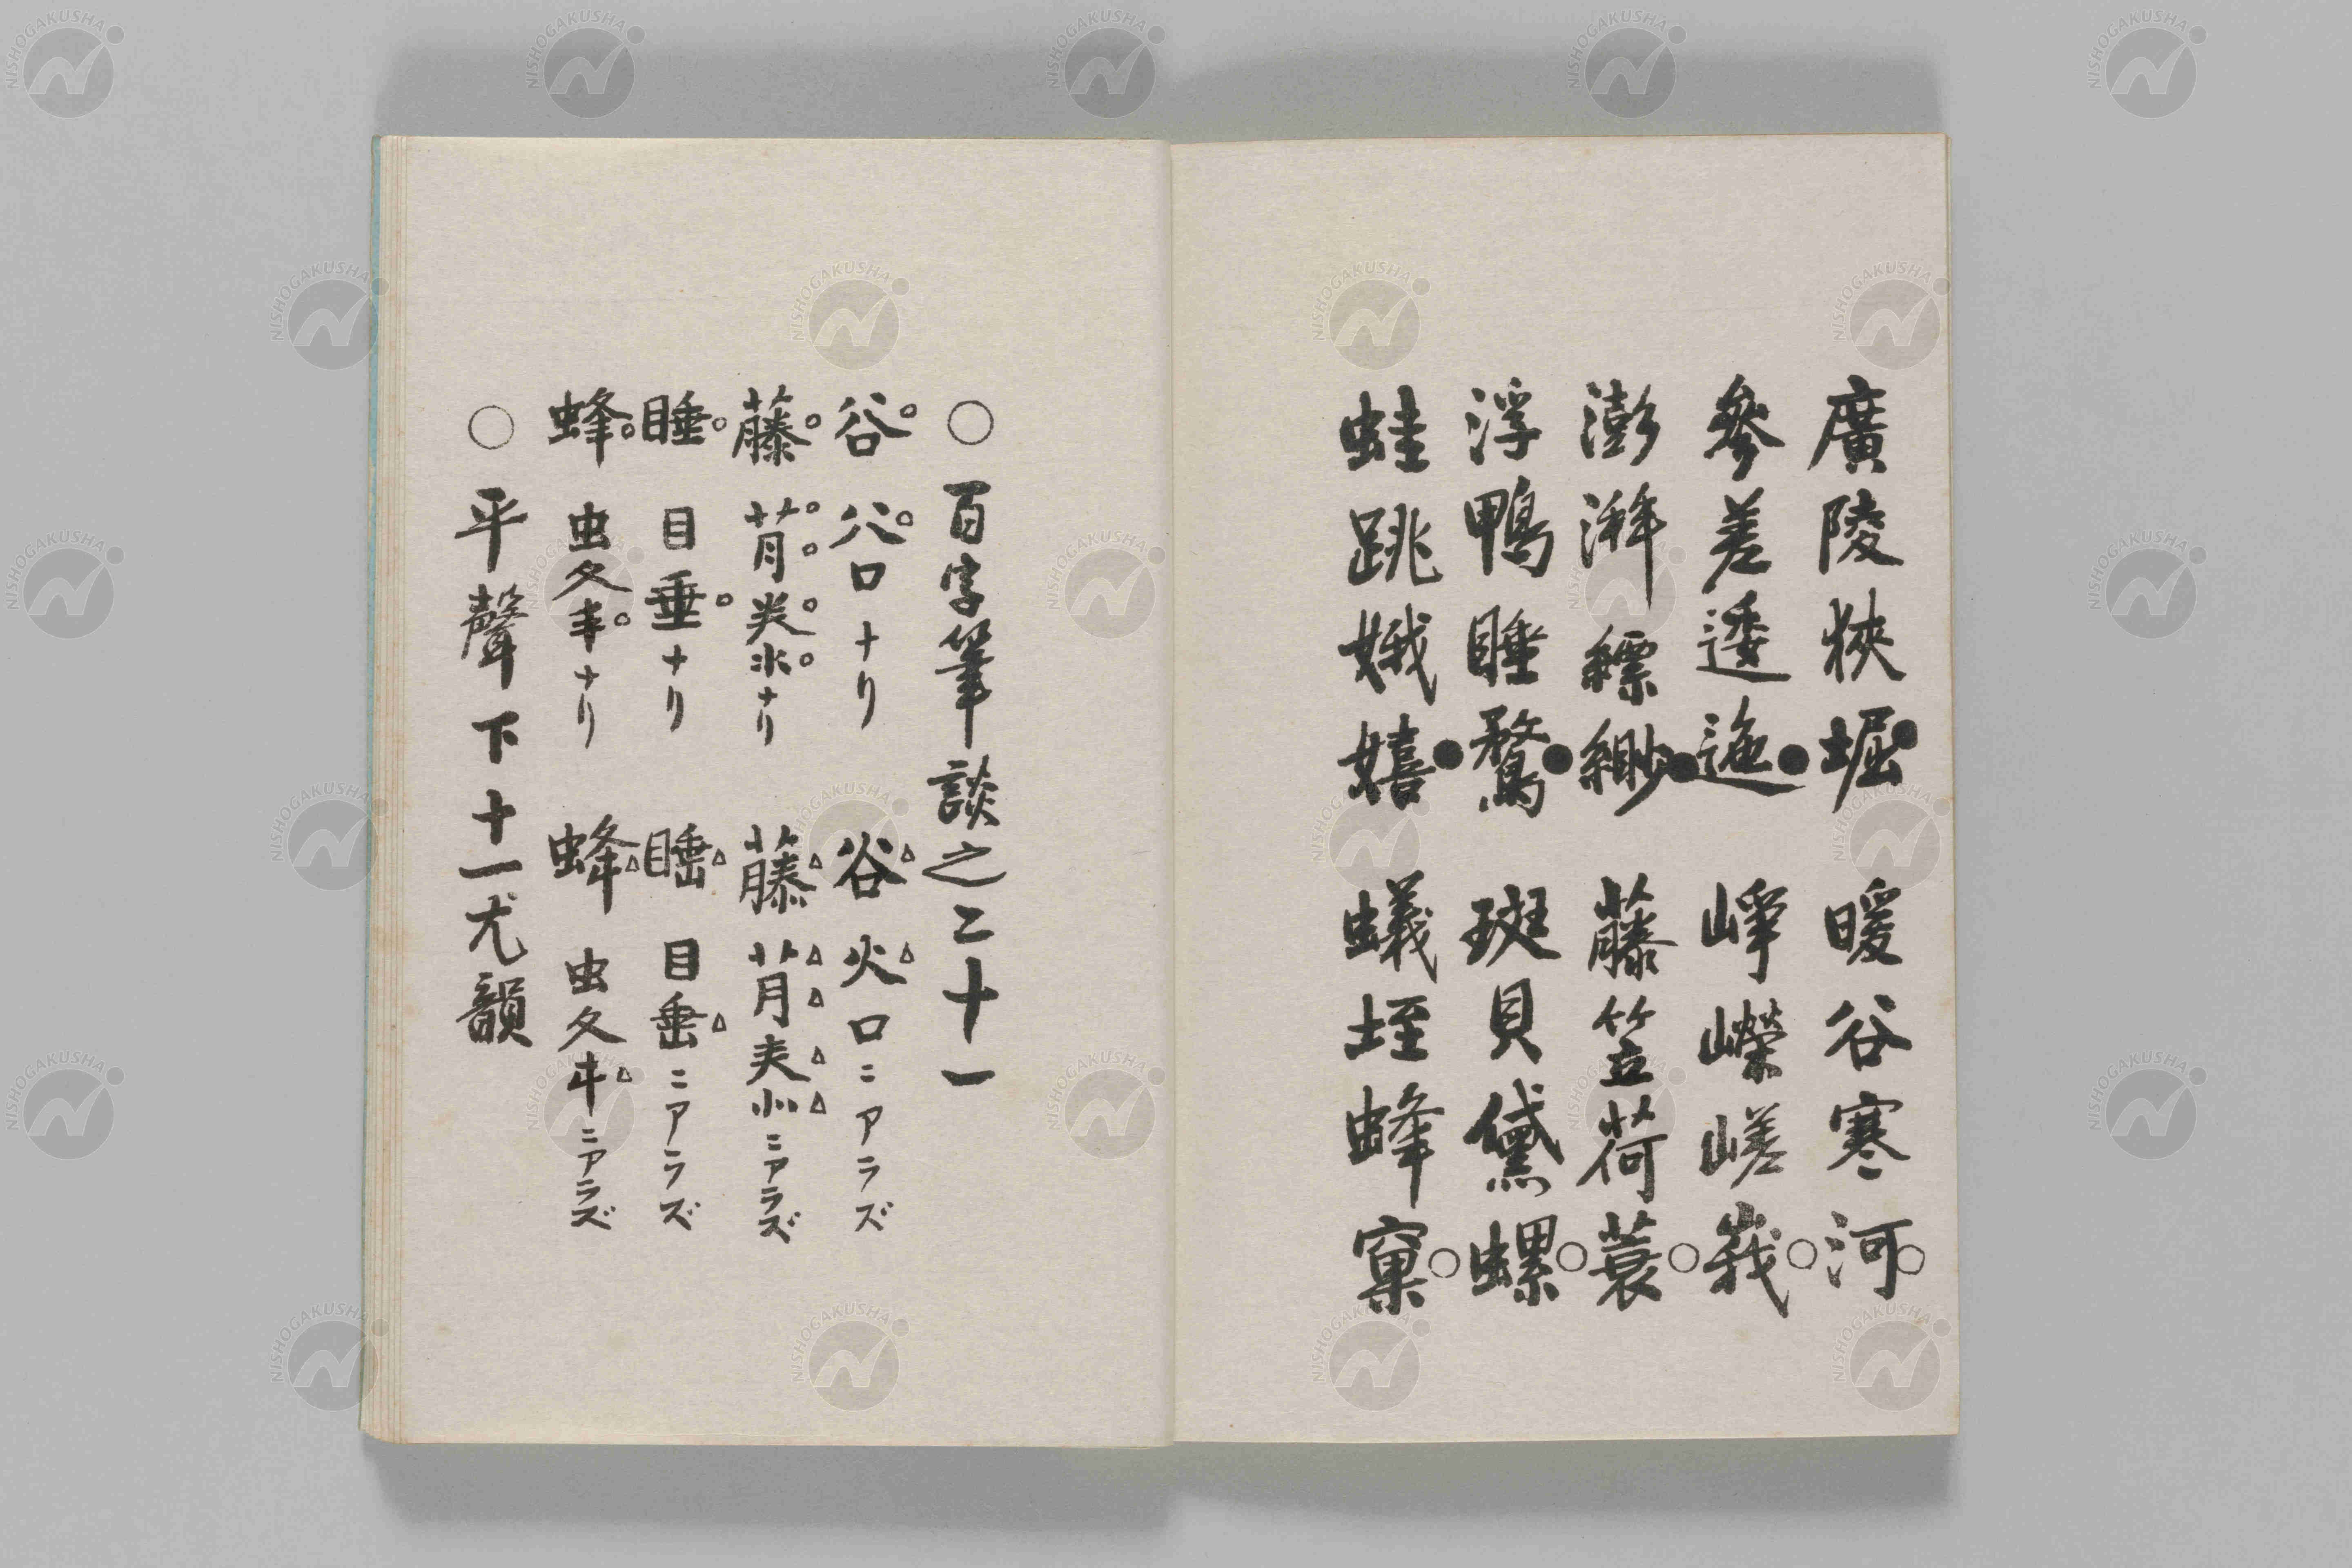 廣陵狹堀 暖谷寒河
參差逶迤 崢嶸嵯峩
澎湃縹緲 藤笠荷蓑
浮鴨睡鶩 斑貝黛螺
蛙跳娥嬉 蟻垤蜂窠
○百字筆談之二十一
谷 八口ナリ 谷 火口ニアラズ
藤 ナリ 藤 ニアラズ
睡 目垂ナリ 睡 目ニアラズ
蜂 虫夂丰ナリ 蜂 虫夂ニアラズ
○平聲下十一尤韻
NISHOGAKUSHA